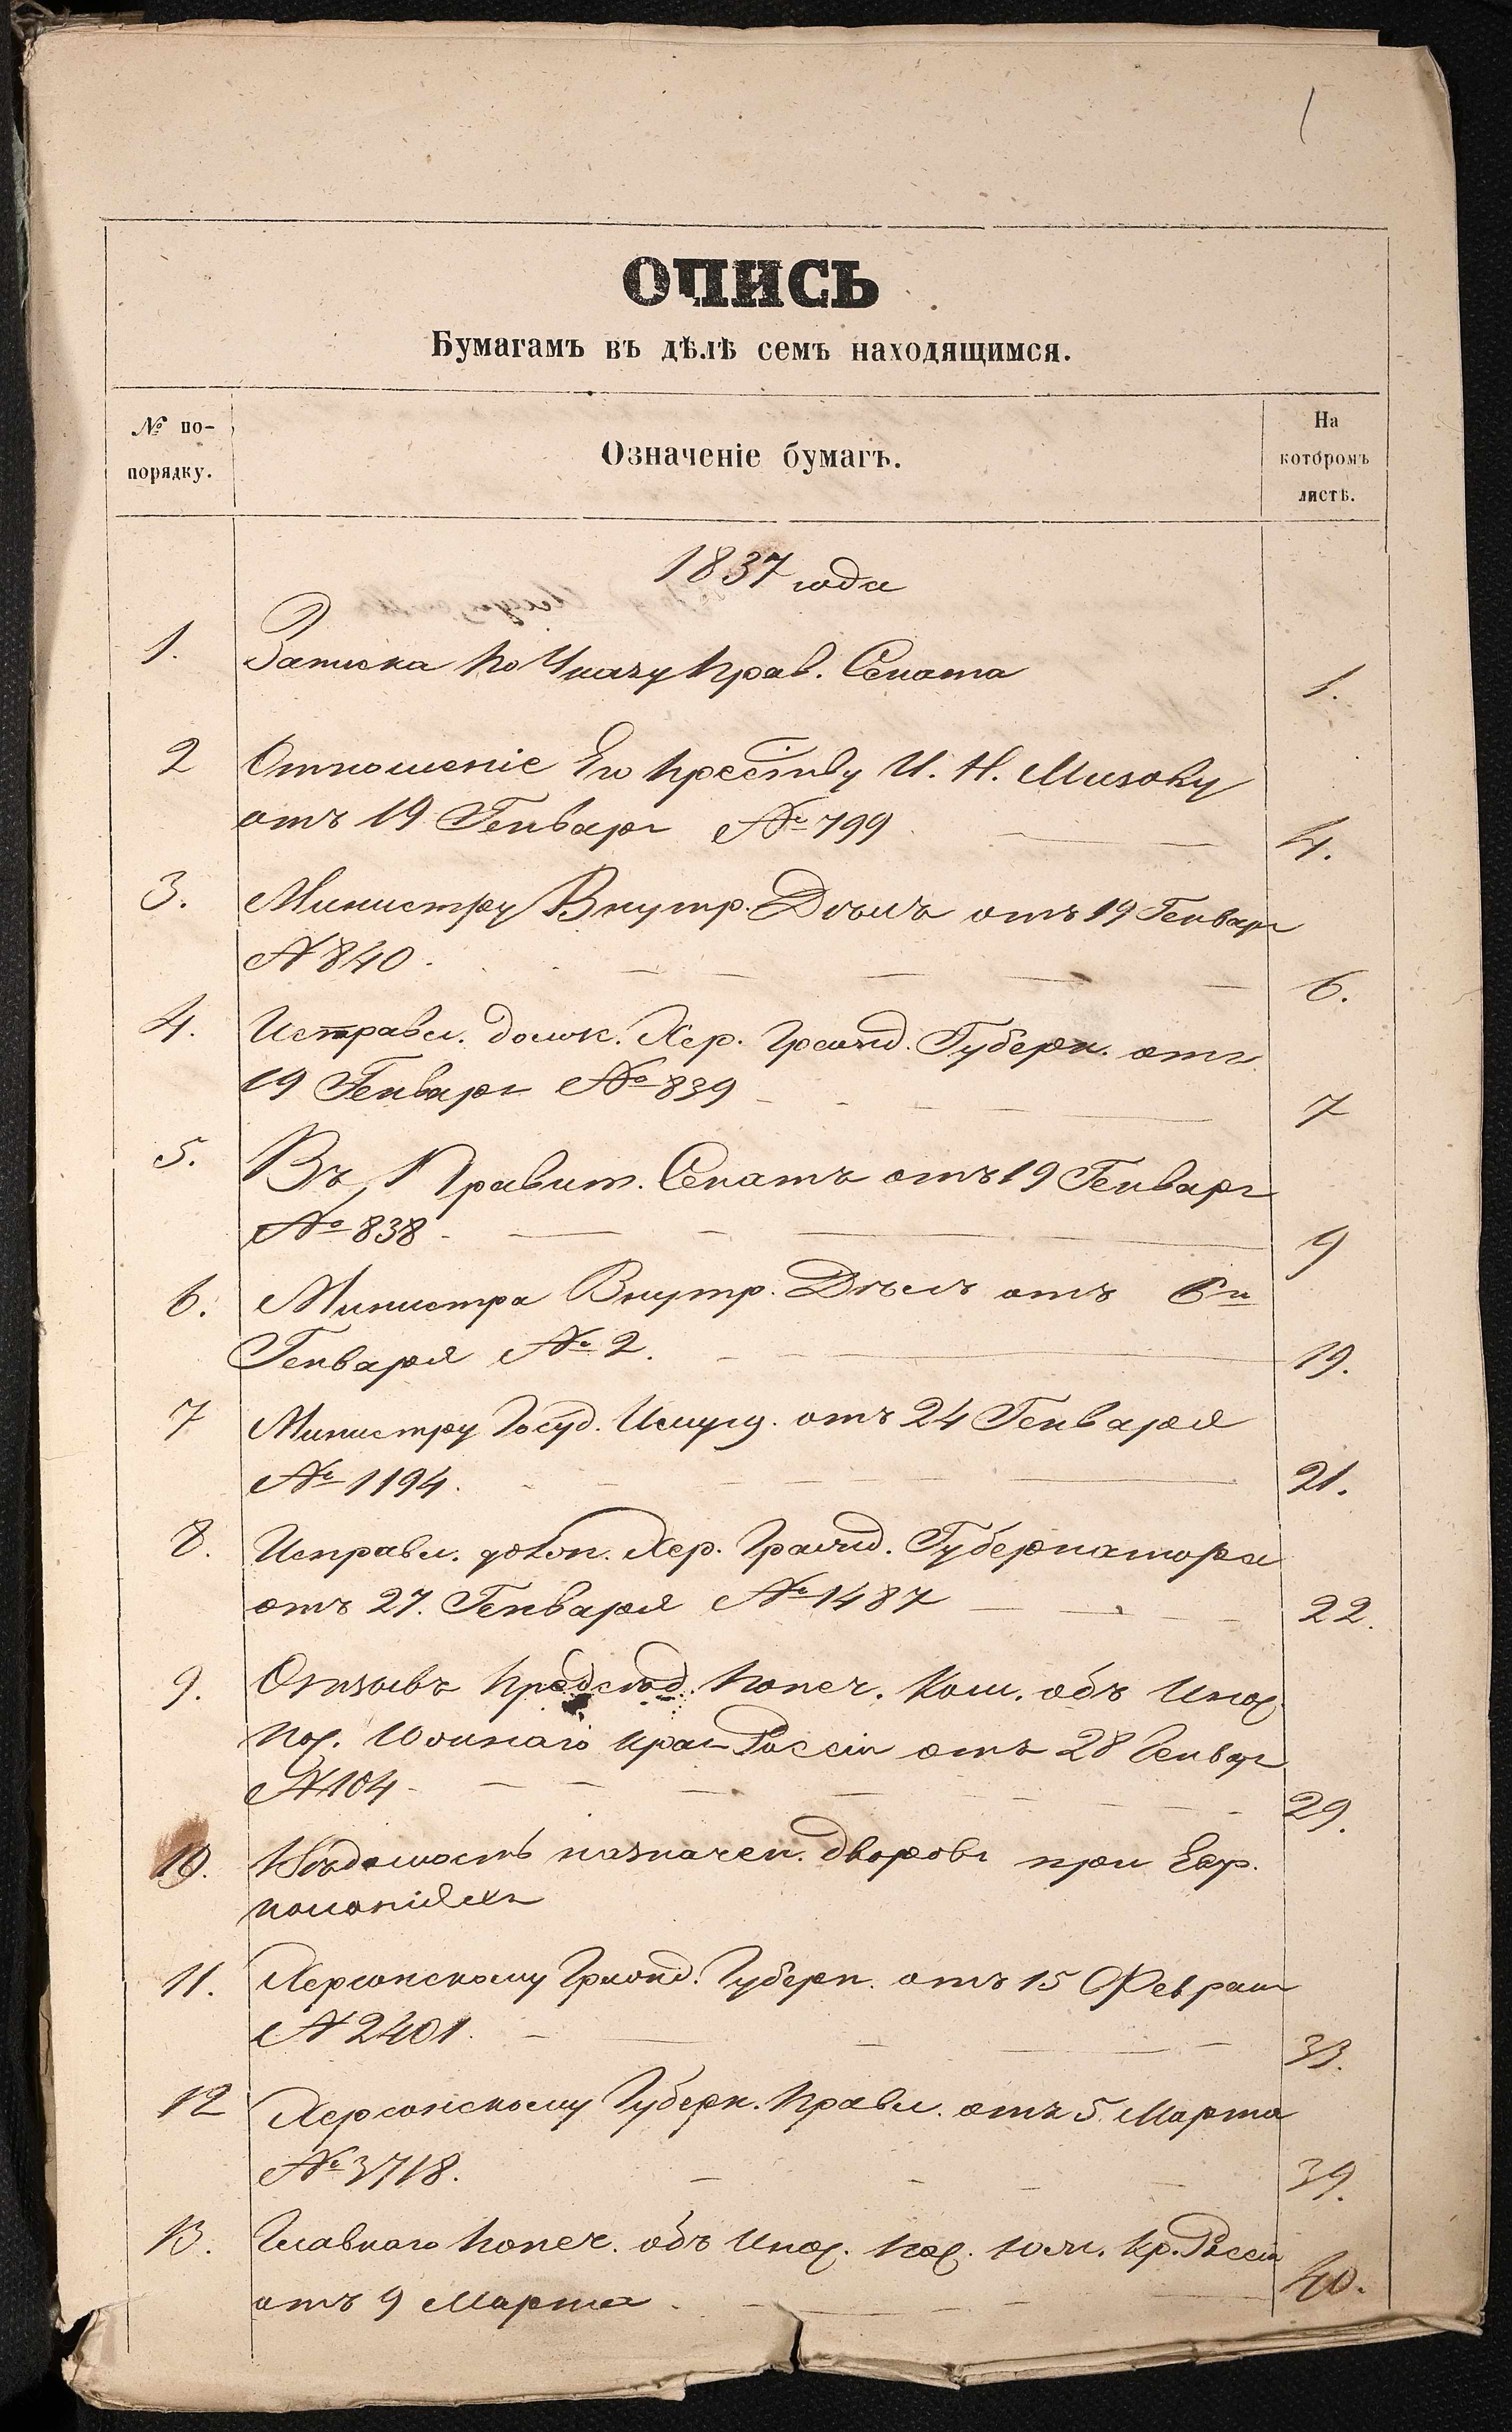 1
ОПИСЬ
Бумагамъ въ дѣлѣ семъ находящимся.
№ по-
порядку.
Означеніе бумагъ.
На
которомъ
листѣ.
1837 года
1. Записка по Указу Прав. Сената 1.
2 Отношеніе Его Прест–ву И. Н.
отъ 19 Генваря № 799 4.
3. Министру Внутр. Дѣлъ отъ 19 Генваря
№ 840. 6.
4. Исправл. долж. Хер. Гражд. Губерн. отъ
19 Генваря № 839 7
5. Въ Правит. Сенатъ отъ 19 Генваря
№ 838 9
6. Министра Внутр. Дѣлъ отъ 6го
Генваря № 2. 19.
7 Министру Госуд. Имущ. отъ 24 Генваря
№ 1194. 21.
8. Исправл. долж. Хер. Гражд. Губернатора
отъ 27. Генваря № 1487 22.
9. Отзывъ Предсѣд. Попеч. Ком. объ Инос.
Пос. Южнаго края Россіи отъ 28 Генваря
№ 104 29.
10. Вѣдомость назначен. дворовъ при Евр.
колоніяхъ
11. Херсонскому Гражд. Губерн. отъ 15 Февраля
№ 2401. 33.
12 Херсонскому Губерн. Правл. отъ 5 Марта
№ 3718. 39.
13. Главнаго Попеч. объ Инос. Пос. Южн. Кр. Россіи
отъ 9 Марта 40.